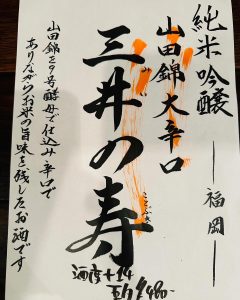 純米吟醸 ── 福岡 ──
山田錦 大辛口
三井の寿
ことぶき
酒度 +14
¥480-
山田錦を9号酵母で仕込み辛口で
ありながらお米の旨味を残したお酒です